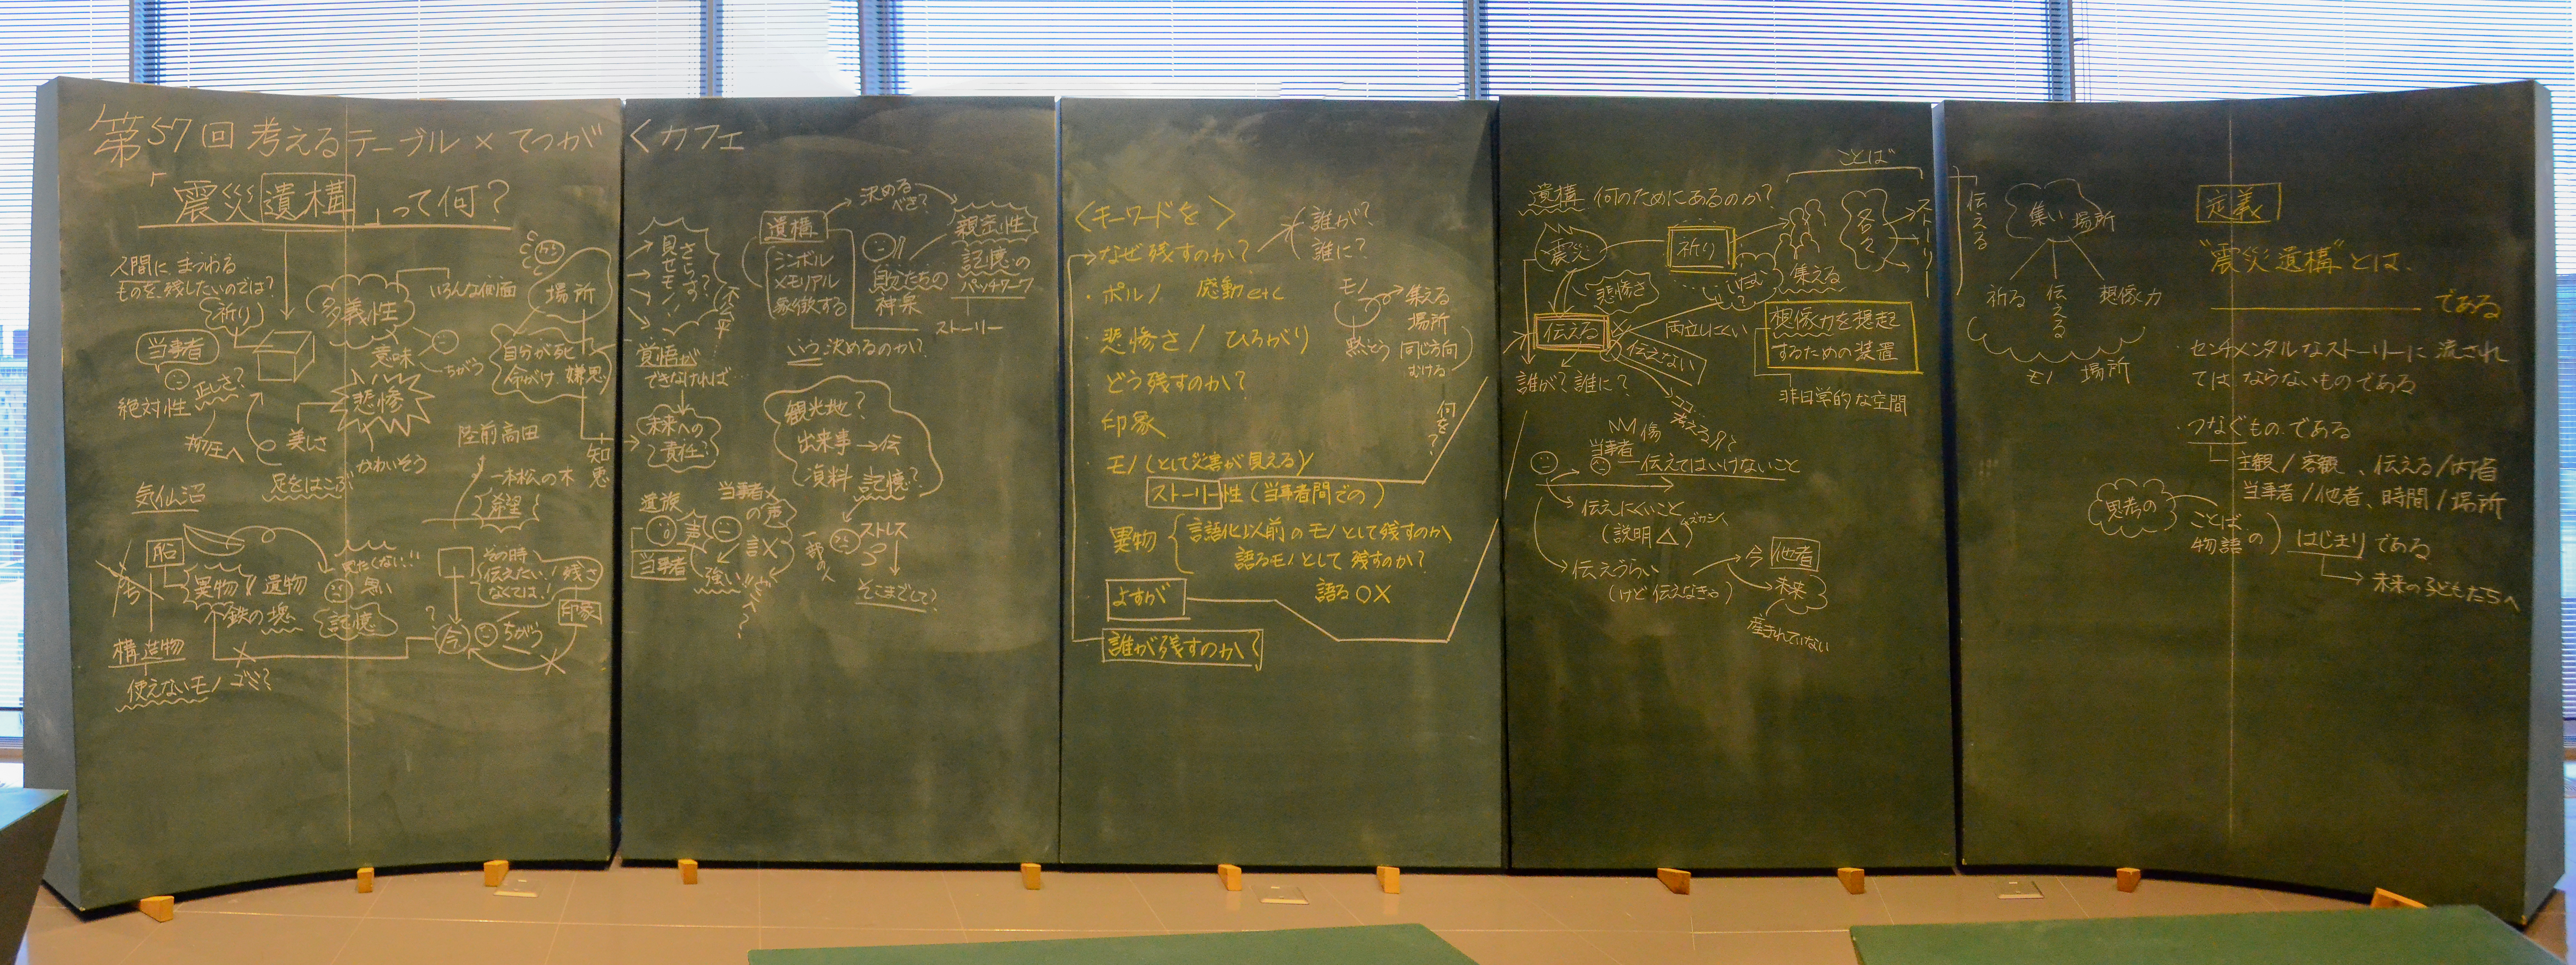 第57回 考えるテーブル × てつがくカフェ
「震災遺構」って何?
人間に、まつわる
ものを、残したいのでは?
祈り
多義性
いろんな側面
場所
当事者
正しさ?
絶対性
意味
ちがう
自分が死
命がけ
悲惨
美しさ
かわいそう
足をはこぶ
陸前高田
一本松の木
希望
知恵
気仙沼
船
異物
遺物
鉄の塊
見たくない!!
黒い
記憶
構造物
使えないモノ ゴミ?
その時
伝えたい!残さ
なくては!
印象
?
今
ちがう
見せモノ?
さらす?
不公平
覚悟が
できなければ…
未来への
責任?
遺構
シンボル
メモリアル
象徴する
決める
べき?
親密性
記憶の
パッチワーク
ストーリー
自分たちの
いつ決めるのか?
観光地?
出来事→伝
資料 記憶?
遺族
当事者
声
当事者×
の声
言×
強い!!
一部の人
ストレス
そこまでして?
<キーワードを>
なぜ残すのか?
誰が?
誰に?
・ポルノ 感動etc
・悲惨さ / ひろがり
どう残すのか?
印象
モノ(として災害が見える)
ストーリー性(当事者間での)
異物
言語化以前のモノとして残すのか
語るモノとして残すのか?
語る○×
よすが
誰が残すのか?
モノ
集える
場所
同じ方向
むける
何を?
遺構 何のためにあるのか?
ことば
震災
祈り
集える
各々
ストーリー
悲惨さ
伝える
伝えない
両立しにくい
想像力を想起
するための装置
非日常的な空間
誰が?誰に?
ココ…
考える
傷
当事者
伝えてはいけないこと
伝えにくいこと
(説明△)
伝えづらい
(けど伝えなきゃ)
今 他者
未来
産まれていない
伝える
集い 場所
祈る
伝える
想像力
モノ 場所
定義
"震災遺構"とは、
である
・センチメンタルなストーリーに流され
てはならないものである
・つなぐもの である
主観/客観、伝える/内省
当事者/他者、時間/場所
思考の
ことば
物語の
はじまりである
未来の子どもたちへ